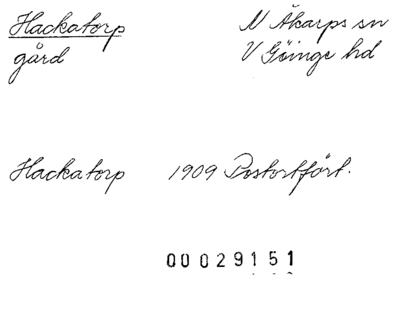 Hackatorp N Åkarps sn
gård V Göinge hd
Hackatorp 1909 Postortfört.
00029151